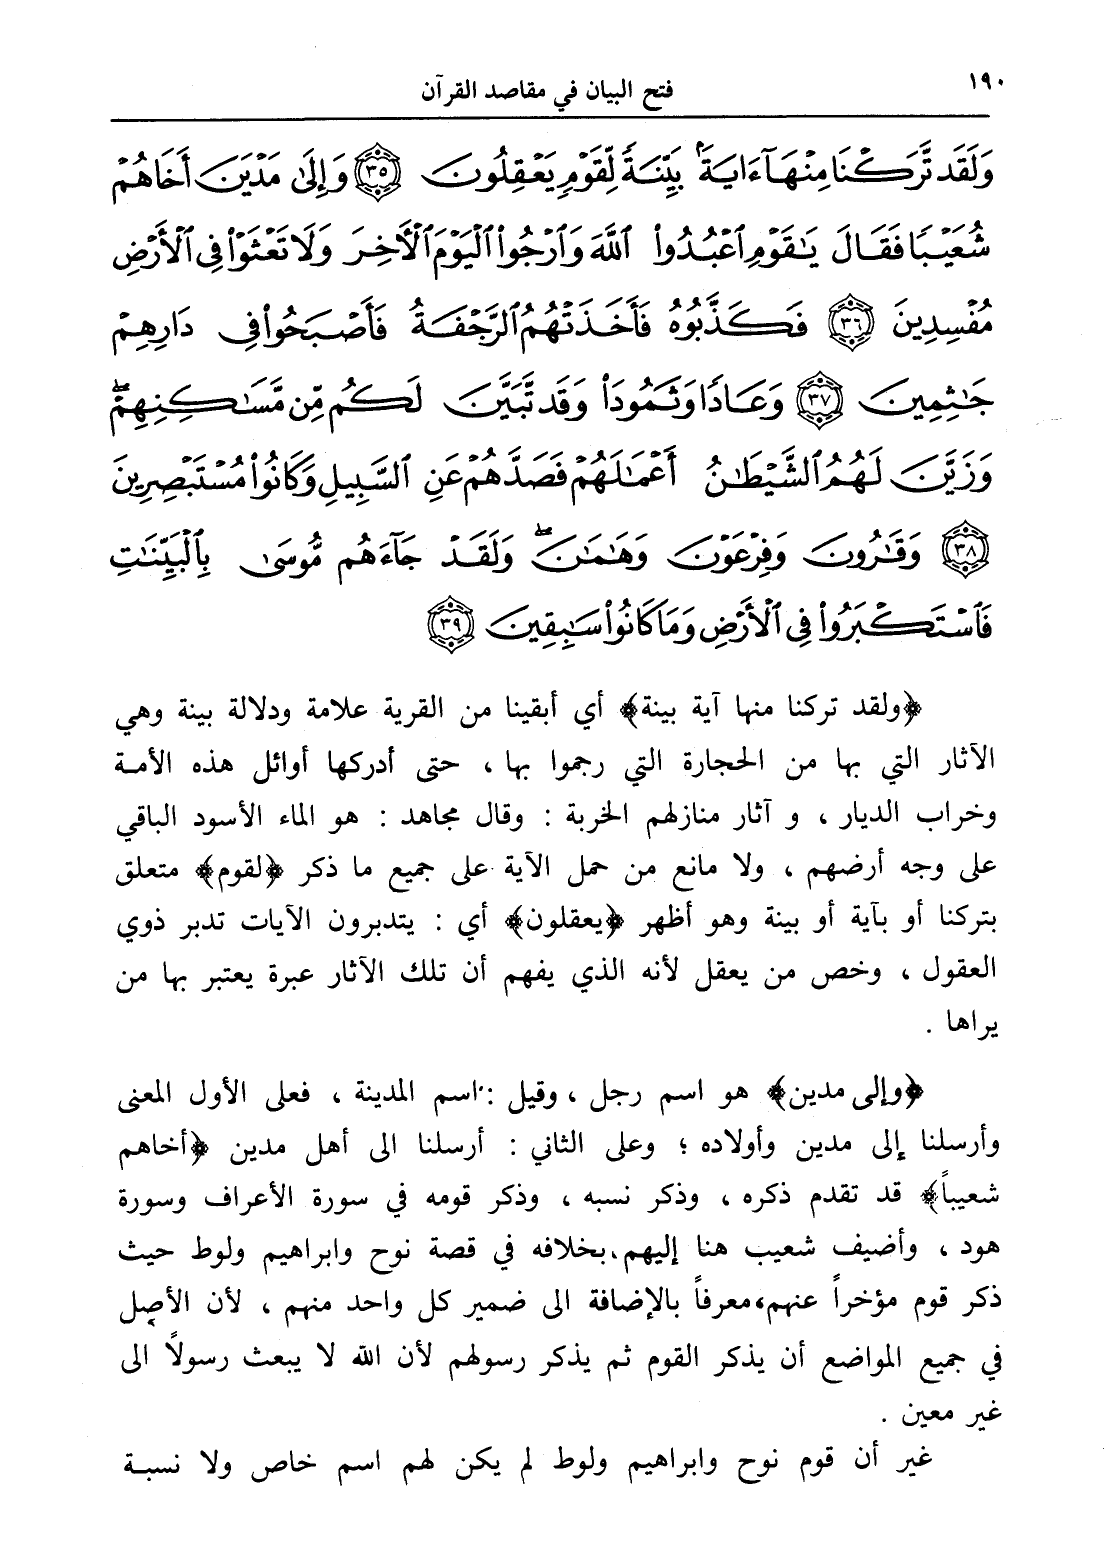 ١٩٠
فتح البيان في مقاصد القرآن
وَلَقَد تَّرَكْنَا مِنْهَآ ءَايَةَۢ بَيِّنَةً لِّقَوْمٍ يَعْقِلُونَ ٣٥ وَإِلَىٰ مَدْيَنَ أَخَاهُمْ
شُعَيْبًا فَقَالَ يَٰقَوْمِ ٱعْبُدُوا۟ ٱللَّهَ وَٱرْجُوا۟ ٱلْيَوْمَ ٱلْأَخِرَ وَلَا تَعْثَوْا۟ فِى ٱلْأَرْضِ
مُفْسِدِينَ ٣٦ فَكَذَّبُوهُ فَأَخَذَتْهُمُ ٱلرَّجْفَةُ فَأَصْبَحُوا۟ فِى دَارِهِمْ
جَٰثِمِينَ ٣٧ وَعَادًا وَثَمُودَا۟ وَقَد تَّبَيَّنَ لَكُم مِّن مَّسَٰكِنِهِمْ ۖ
وَزَيَّنَ لَهُمُ ٱلشَّيْطَٰنُ أَعْمَٰلَهُمْ فَصَدَّهُمْ عَنِ ٱلسَّبِيلِ وَكَانُوا۟ مُسْتَبْصِرِينَ
٣٨ وَقَٰرُونَ وَفِرْعَوْنَ وَهَٰمَٰنَ ۖ وَلَقَدْ جَآءَهُم مُّوسَىٰ بِٱلْبَيِّنَٰتِ
فَٱسْتَكْبَرُوا۟ فِى ٱلْأَرْضِ وَمَا كَانُوا۟ سَٰبِقِينَ ٣٩
﴿ولقد تركنا منها آية بينة﴾ أي أبقينا من القرية علامة ودلالة بينة وهي
الآثار التي بها من الحجارة التي رجموا بها ، حتى أدركها أوائل هذه الأمة
وخراب الديار ، و آثار منازلهم الخربة : وقال مجاهد : هو الماء الأسود الباقي
على وجه أرضهم ، ولا مانع من حمل الآية على جميع ما ذكر ﴿لقوم﴾ متعلق
بتركنا أو بآية أو بينة وهو أظهر ﴿يعقلون﴾ أي : يتدبرون الآيات تدبر ذوي
العقول ، وخص من يعقل لأنه الذي يفهم أن تلك الآثار عبرة يعتبر بها من
يراها .
﴿وإلى مدين﴾ هو اسم رجل ، وقيل : اسم المدينة ، فعلى الأول المعنى
وأرسلنا إلى مدين وأولاده ؛ وعلى الثاني : أرسلنا الى أهل مدين ﴿أخاهم
شعيباً﴾ قد تقدم ذكره ، وذكر نسبه ، وذكر قومه في سورة الأعراف وسورة
هود ، وأضيف شعيب هنا إليهم، بخلافه في قصة نوح وابراهيم ولوط حيث
ذكر قوم مؤخراً عنهم، معرفاً بالإضافة الى ضمير كل واحد منهم ، لأن الأصل
في جميع المواضع أن يذكر القوم ثم يذكر رسولهم لأن الله لا يبعث رسولاً الى
غير معين .
غير أن قوم نوح وابراهيم ولوط لم يكن لهم اسم خاص ولا نسبة